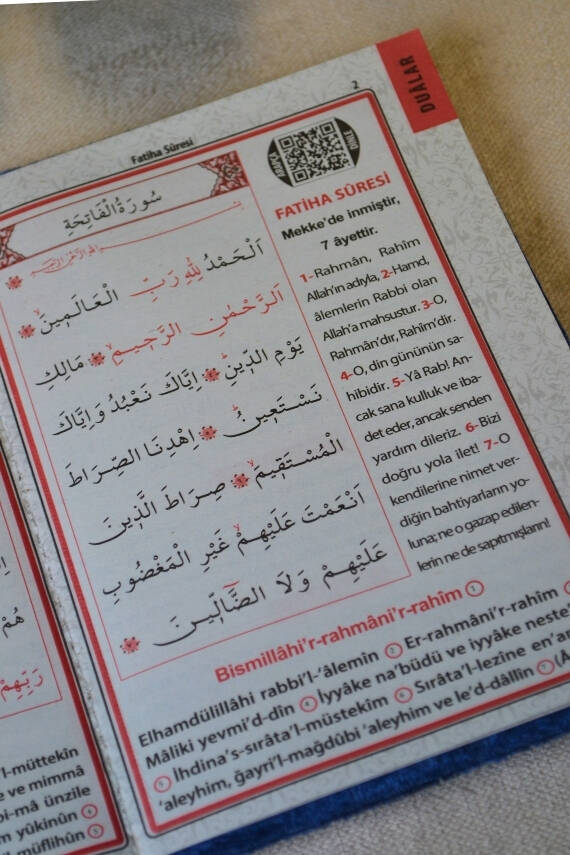 DUALAR
2
Fatiha Sûresi
سُورَةُ الْفَاتِحَةِ
بِسْمِ اللّٰهِ الرَّحْمٰنِ الرَّحِيمِ
اَلْحَمْدُ لِلّٰهِ رَبِّ الْعَالَمِينَ
اَلرَّحْمٰنِ الرَّحِيمِ مَالِكِ
يَوْمِ الدِّينِ اِيَّاكَ نَعْبُدُ وَاِيَّاكَ
نَسْتَعِينُ اِهْدِنَا الصِّرَاطَ
الْمُسْتَقِيمَ صِرَاطَ الَّذِينَ
اَنْعَمْتَ عَلَيْهِمْ غَيْرِ الْمَغْضُوبِ
عَلَيْهِمْ وَلَا الضَّالِّينَ
FATİHA SÛRESİ
Mekke'de inmiştir,
7 âyettir.
1- Rahmân, Rahîm
Allah'ın adıyla, 2-Hamd,
âlemlerin Rabbi olan
Allah'a mahsustur. 3-O,
Rahmân'dır, Rahîm'dir.
4-O, din gününün sa-
hibidir. 5-Yâ Rab! An-
cak sana kulluk ve iba-
det eder, ancak senden
yardım dileriz. 6- Bizi
doğru yola ilet! 7-O
kendilerine nimet ver-
diğin bahtiyarların yo-
luna; ne o gazap edilen-
lerin ne de sapıtmışların!
Bismillâhi'r-rahmâni'r-rahîm 1
Elhamdülillâhi rabbi'l-'âlemîn 2 Er-rahmâni'r-rahîm
Mâliki yevmi'd-dîn 4 İyyâke na'büdü ve iyyâke neste'
5 İhdina's-sırâta'l-müstekîm 6 Sırâta'l-lezîne en'am
'aleyhim, ğayri'l-mağdûbi 'aleyhim ve le'd-dâllîn 7 (A
هُمْ
رَبِّهِمْ
'l-müttekîn
e ve mimmâ
bi-mâ ünzile
m yûkinûn 4
l-müflihûn 5